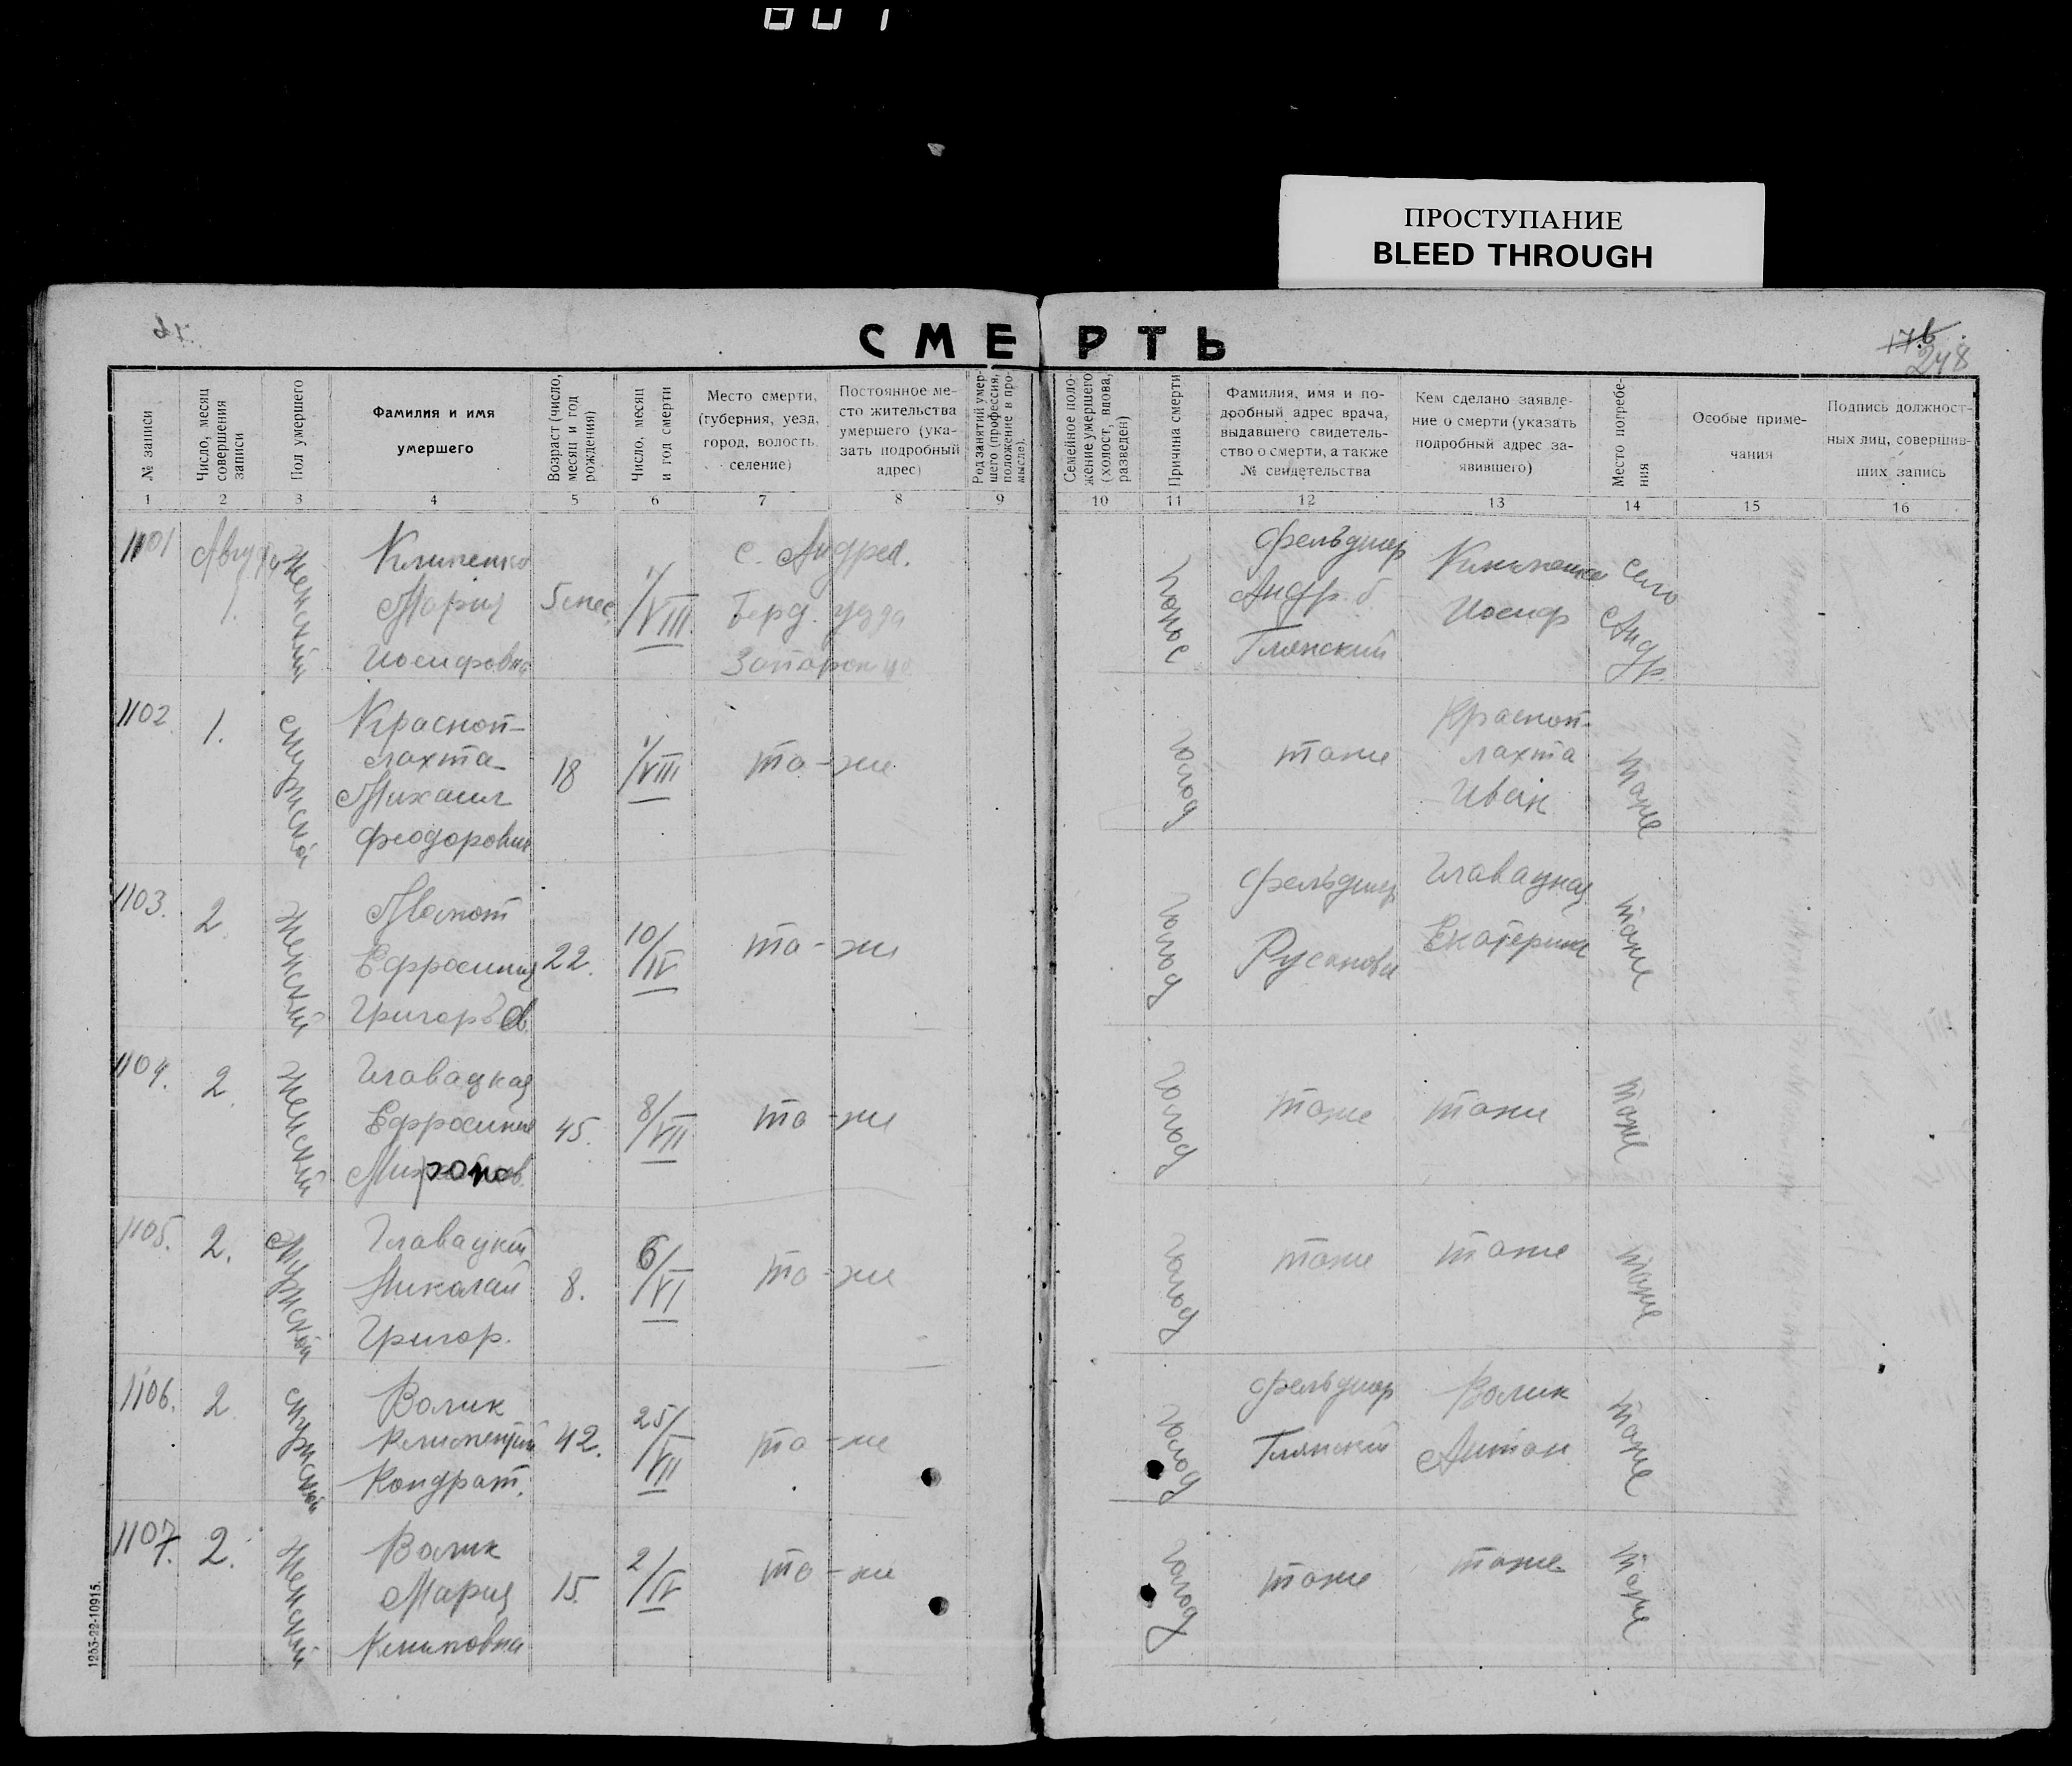 ПРОСТУПАНИЕ
BLEED THROUGH
СМЕРТЬ
17б
248
№ записи
Число, месяц совершения записи
Пол умершего
Фамилия и имя умершего
Возраст (число, месяц и год рождения)
Число, месяц и год смерти
Место смерти, (губерния, уезд, город, волость, селение)
Постоянное место жительства умершего (указать подробный адрес)
Род занятий умершего (профессия, положение в промысле).
Семейное положение умершего (холост, вдова, разведен)
Причина смерти
Фамилия, имя и подробный адрес врача, выдавшего свидетельство о смерти, а также № свидетельства
Кем сделано заявление о смерти (указать подробный адрес заявившего)
Место погребения
Особые примечания
Подпись должностных лиц, совершивших запись
1 2 3 4 5 6 7 8 9 10 11 12 13 14 15 16
1101 Август 1. Женский
Клименко
Мария
Иосифовна
5 мес. 1/VIII
с. Андреев.
Берд. уезда
Понос
Фельдшер
Андр. б.
Глянский
Клименко
Иосиф
Село
Андр.
1102 1. Мужской
Красноп-
лахта
Михаил
Феодорович
18 1/VIII то-же голод тоже
Красноп-
лахта
Иван
тоже
1103. 2. Женский
Ефросиния
Григорьев.
22. 10/IV то-же голод
Фельдшер
Русанова
Главацкая
Екатерина
тоже
1104. 2. Женский
Главацкая
Ефросиния
Миронов.
45. 8/VII то-же голод тоже тоже тоже
1105. 2. Мужской
Главацкий
Николай
Григор.
8. 6/VI то-же голод тоже тоже тоже
1106. 2 Мужской
Волик
Климентий
Кондрат.
42. 25/VII то-же голод
Фельдшер
Глянский
Волик
Антон
тоже
1107. 2. Женский
Волик
Мария
Климовна
15. 2/IV то-же голод тоже тоже тоже
1253-22-10915.